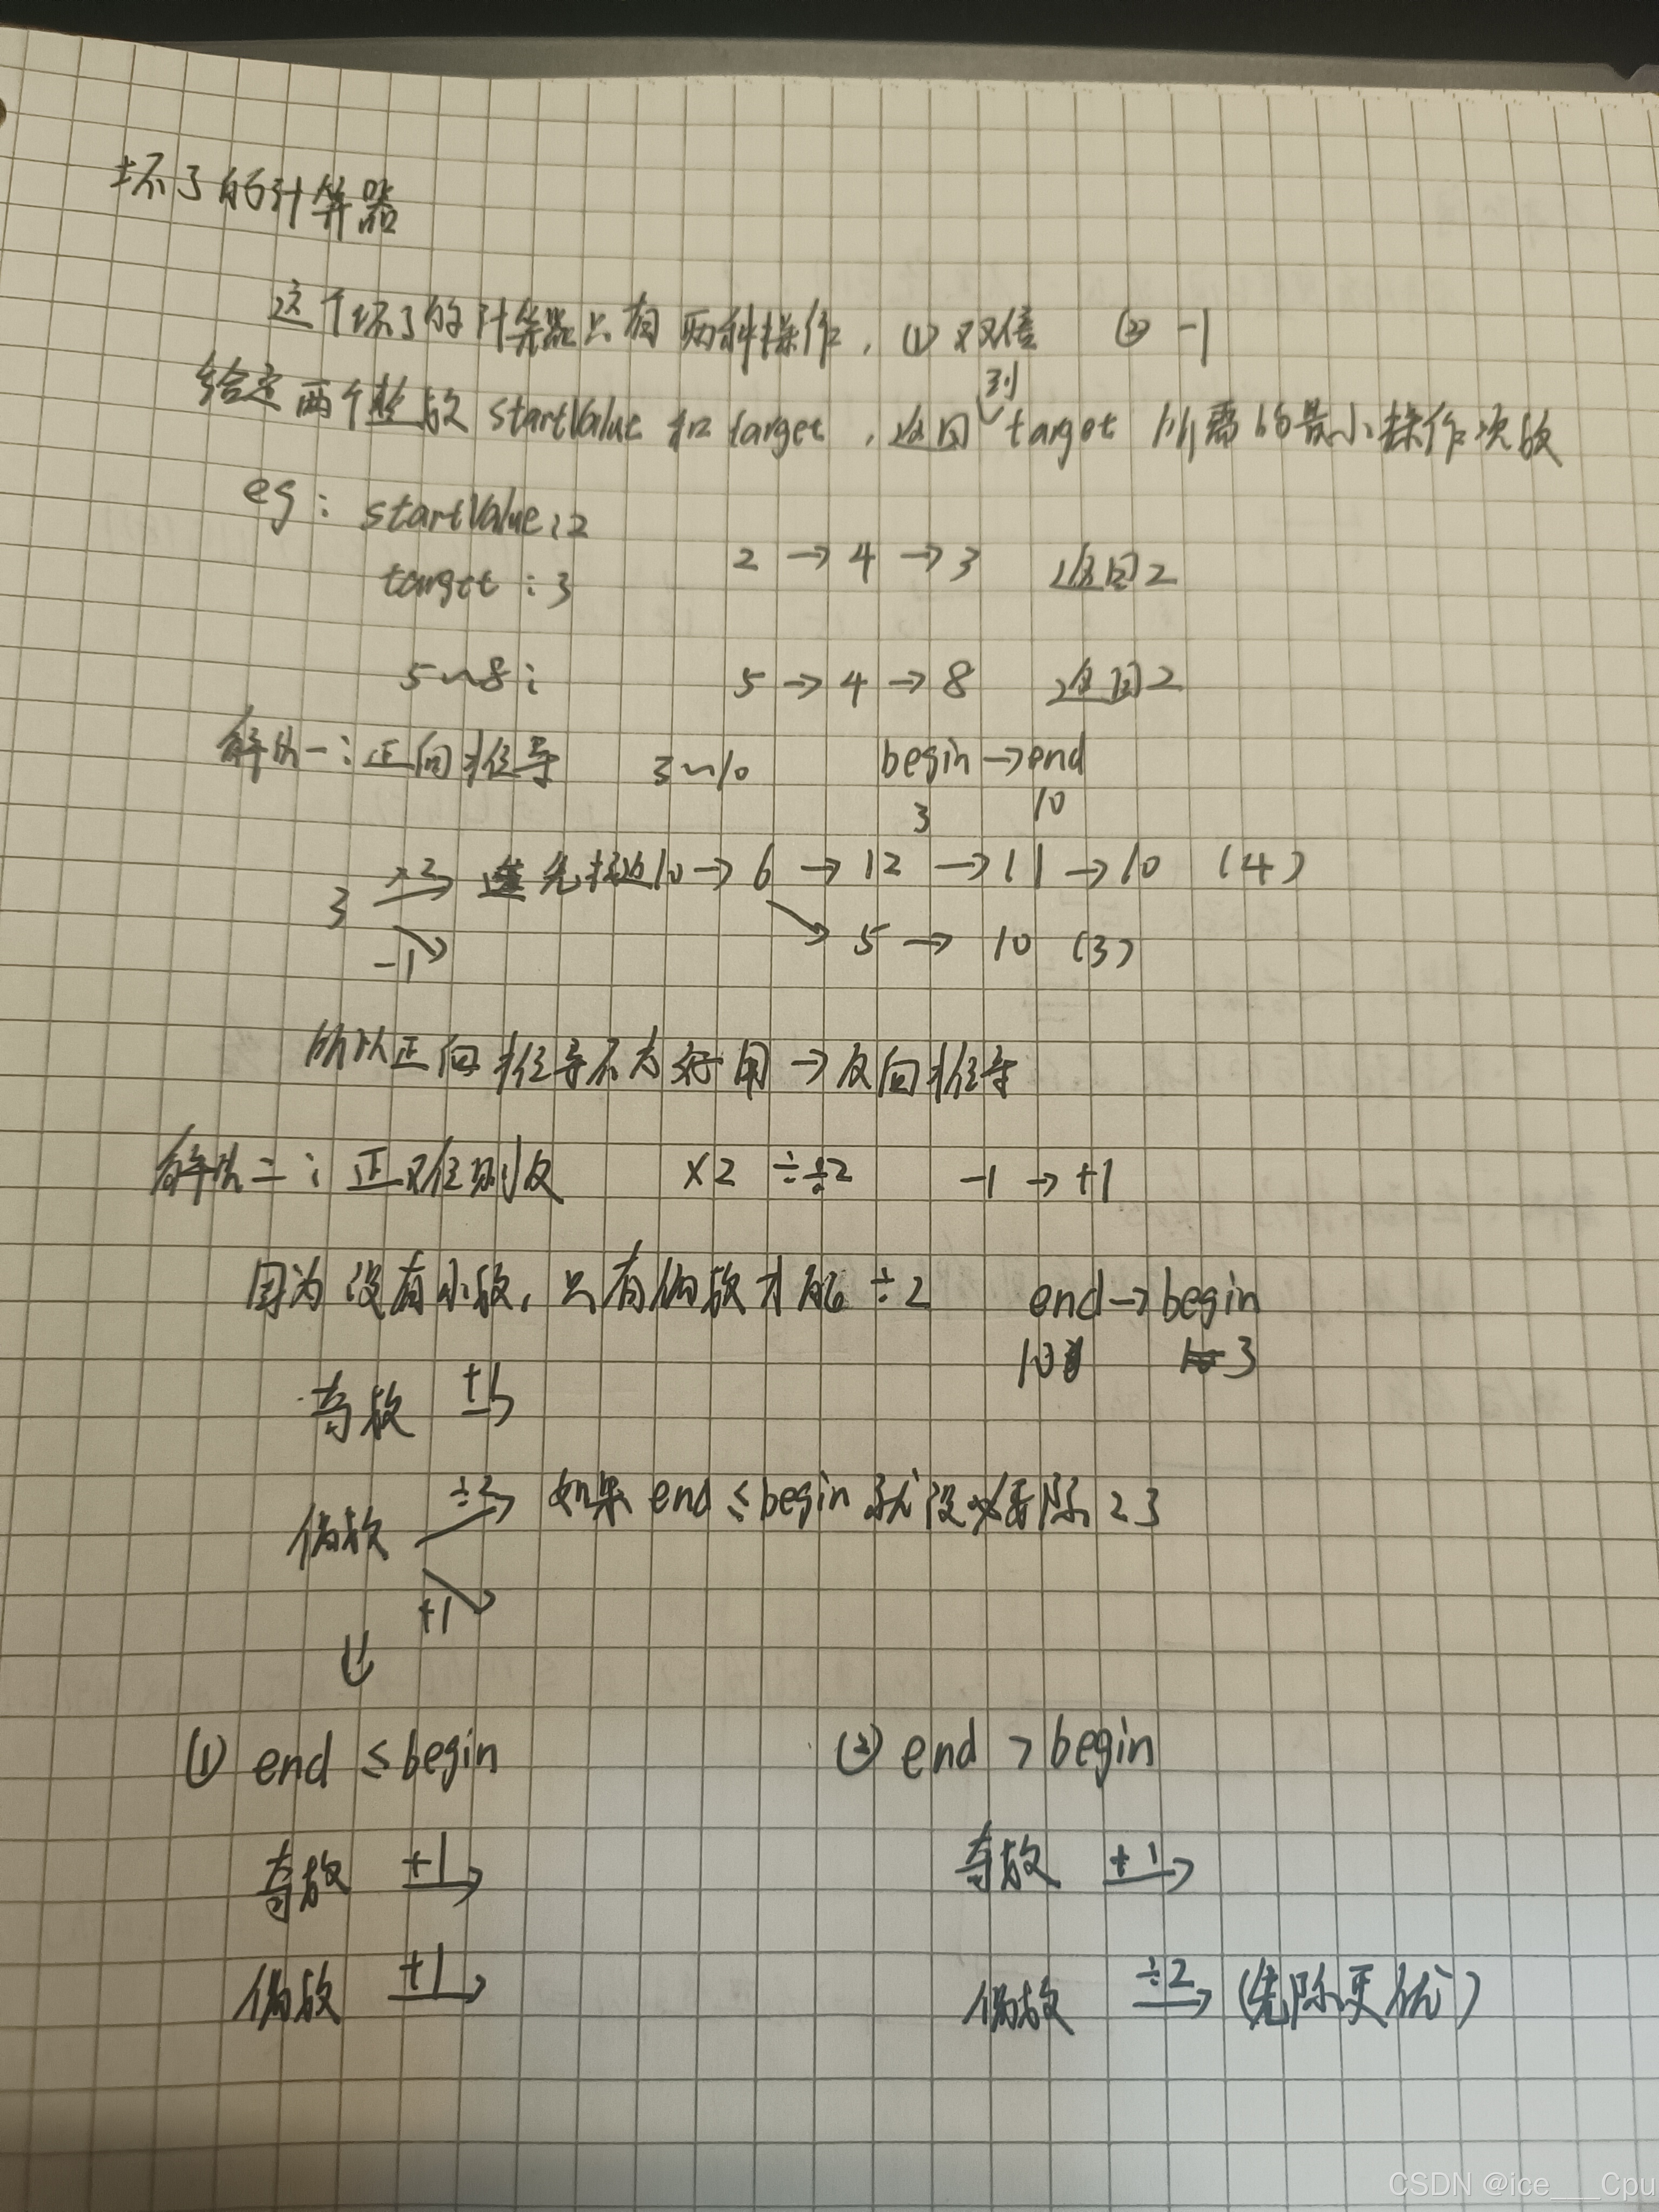 坏了的计算器
这个坏了的计算器只有两种操作，① 双倍 ② -1
给定两个整数 startValue 和 target，返回到target 所需的最小操作次数
eg: startValue:2
target:3
2 → 4 → 3 返回2
5~8: 5 → 4 → 8 返回2
解法一:正向推导 3~10 begin→end
3 10
3 ×2→ 先接近10 → 6 → 12 → 11 → 10 (4)
-1 → 5 → 10 (3)
所以正向推导不太好用 → 反向推导
解法二:正难则反 ×2 ÷2 -1 → +1
因为没有小数，只有偶数才能÷2 end→begin
10 3
奇数 +1→
偶数 ÷2→ 如果 end ≤ begin 就没必要除2了
+1
① end ≤ begin ② end > begin
奇数 +1→ 奇数 +1→
偶数 +1→ 偶数 ÷2→ (先除更优)
CSDN @ice___Cpu